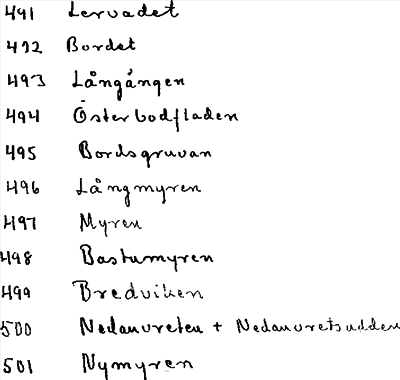 491 Lervadet
492 Bordet
493 Långängen
494 Österbodfladen
495 Bordsgruvan
496 Långmyren
497 Myren
498 Bastumyren
499 Bredviken
500 Nedanvreten + Nedanvretsudden
501 Nymyren